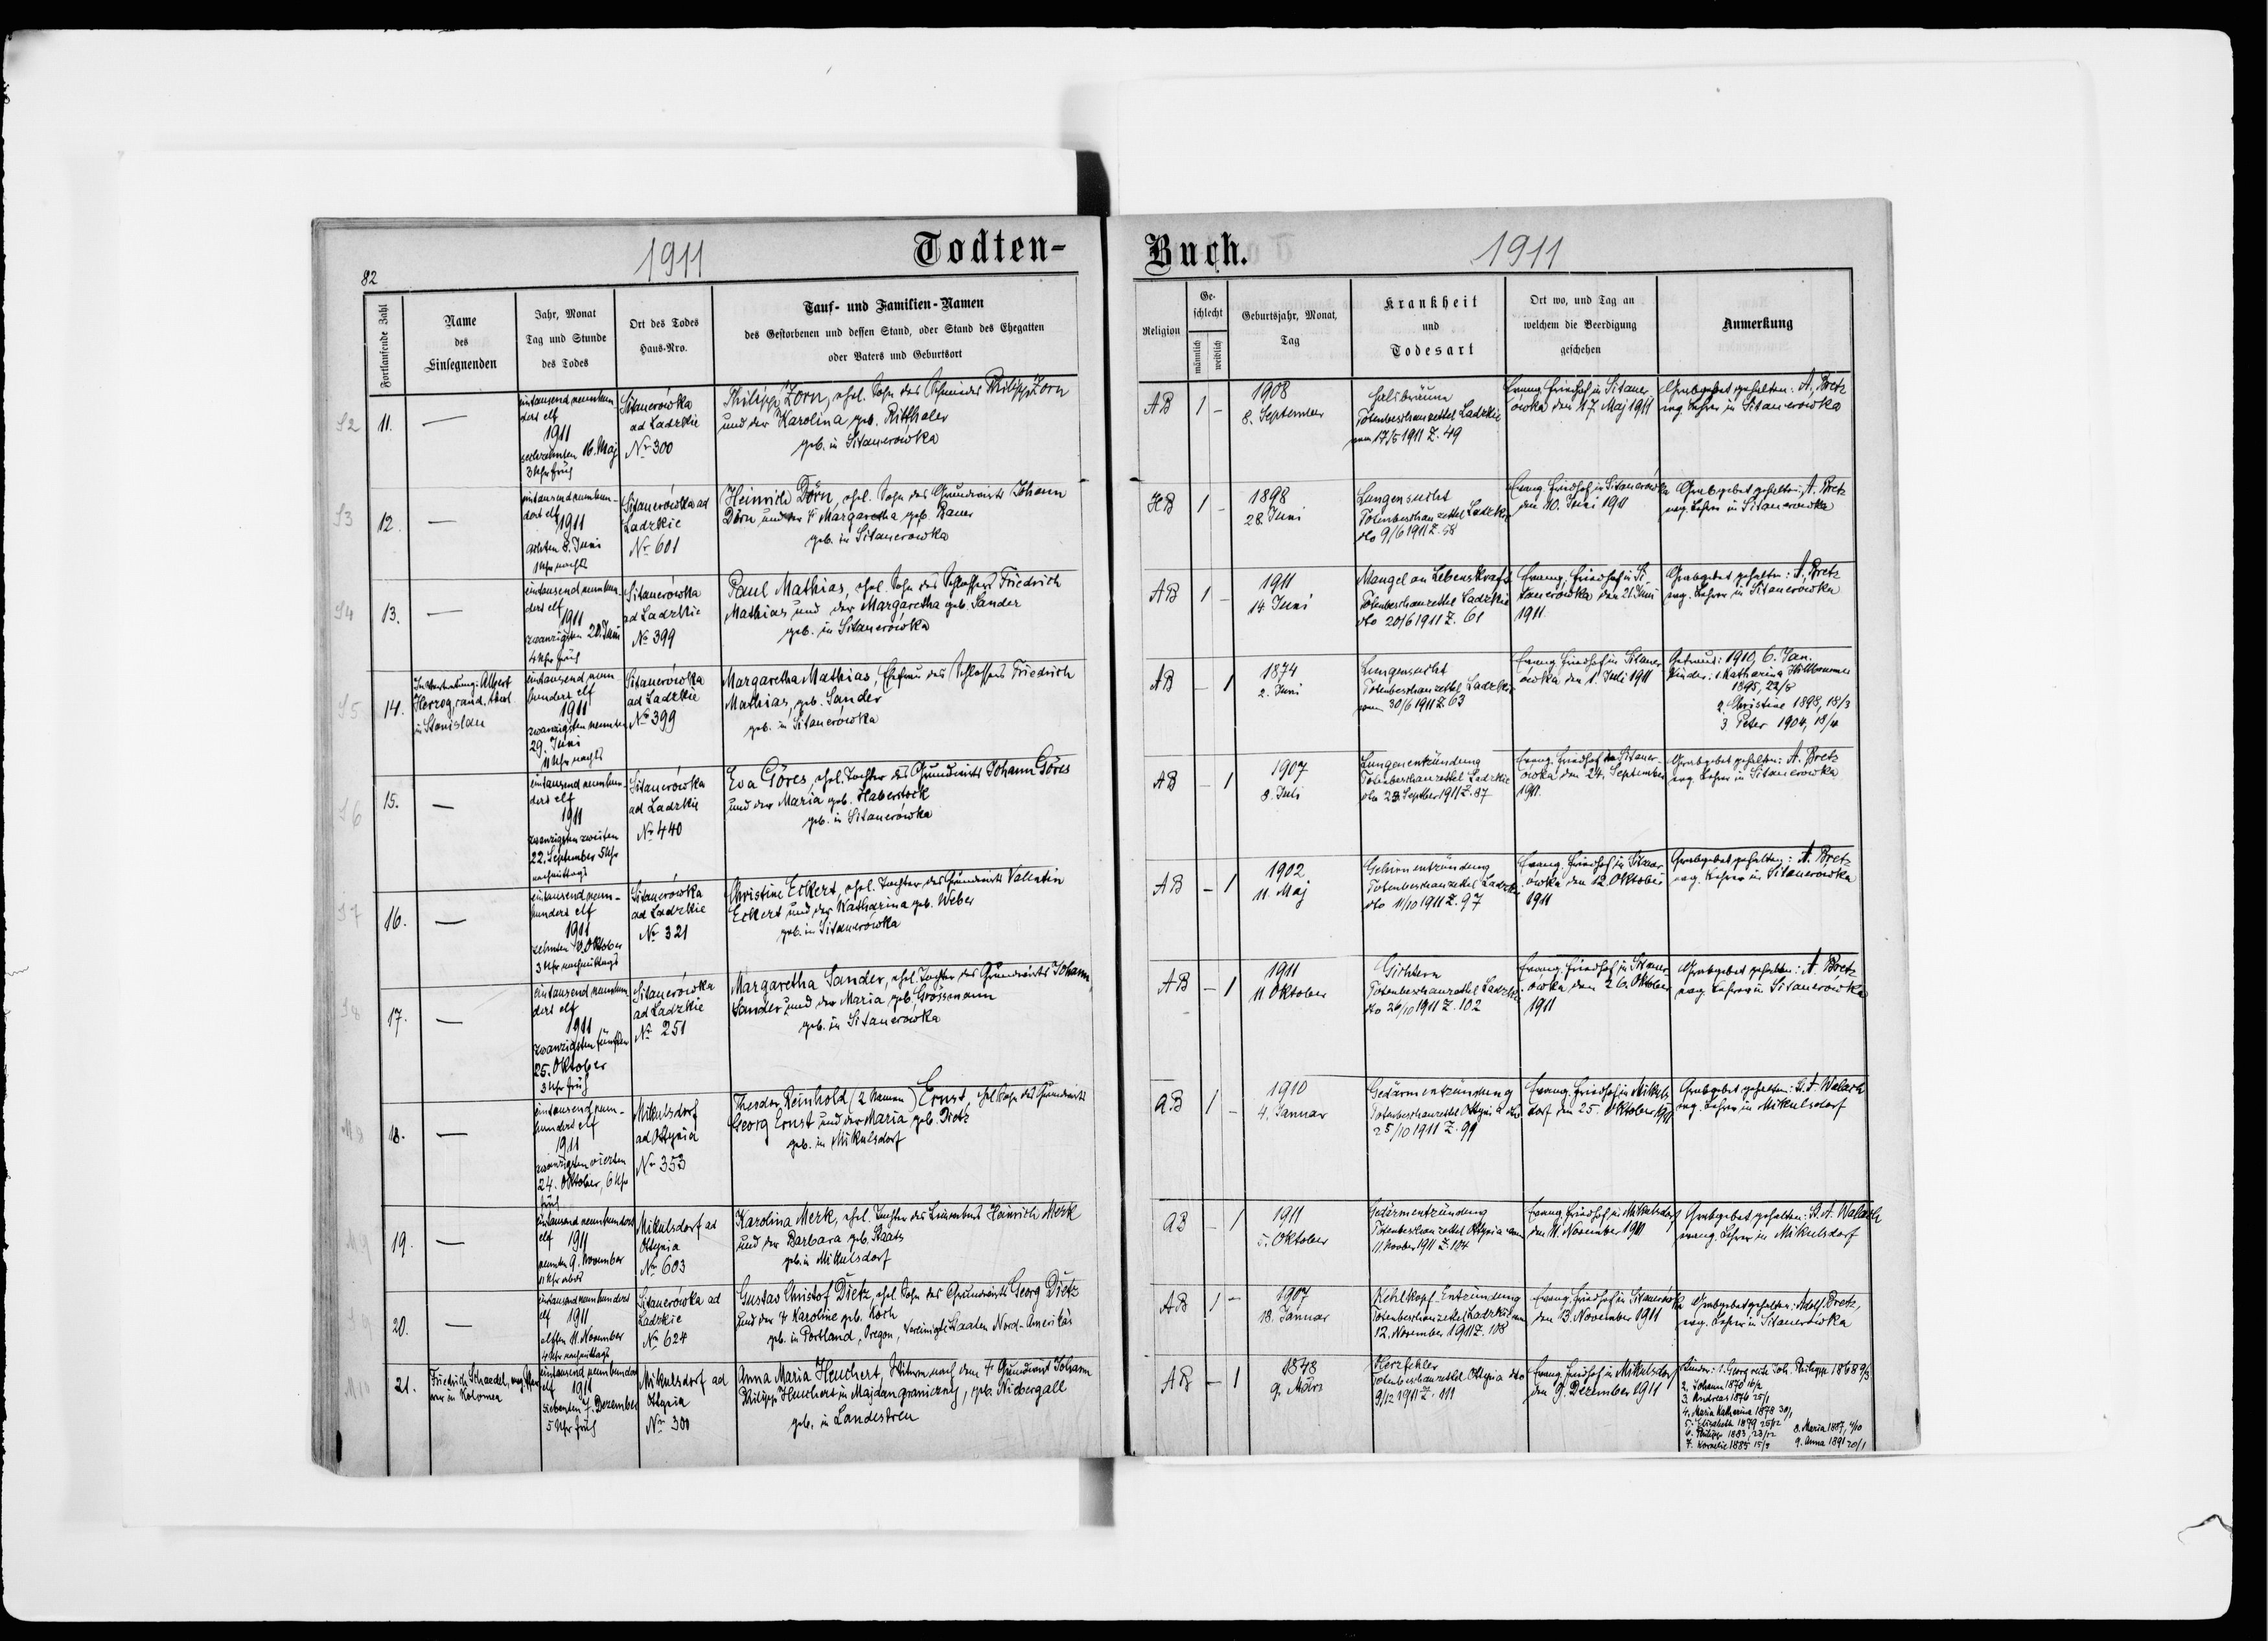 82
1911
Todten-
Fortlaufende Zahl
Name
des
Einsegnenden
Jahr, Monat
Tag und Stunde
des Todes
Ort des Todes
Haus-Nro.
Tauf- und Familien-Namen
des Gestorbenen und dessen Stand, oder Stand des Ehegatten
oder Vaters und Geburtsort
S2
11.
—
eintausend neunhun-
dert elf
1911
sechzehnten 16. Maj
3 Uhr früh
Sitauerówka
ad Ladzkie
Nr 300
Philipp Zorn, ehel. Sohn des Schmiedes Philipp Zorn
und der Karolina geb. Ritthaler
geb. in Sitauerówka
S3
12.
—
eintausend neunhun-
dert elf
1911
achten 8. Juni
1 Uhr nachts
Sitauerówka ad
Ladzkie
Nr 601
Heinrich Dörn, ehel. Sohn des Grundwirts Johann
Dörn und der † Margaretha geb. Bauer
geb. in Sitauerówka
S4
13.
—
eintausend neunhun-
dert elf
1911
zwanzigsten 20. Juni
4 Uhr früh
Sitauerówka
ad Ladzkie
Nr 399
Paul Mathias, ehel. Sohn des Schlossers Friedrich
Mathias und der Margaretha geb. Sander
geb. in Sitauerówka
S5
14.
In Vertretung: Albert
Herzog, cand. theol.
in Stanislau
eintausend neun-
hundert elf
1911
zwanzigsten neunten
29. Juni
11 Uhr nachts
Sitauerówka
ad Ladzkie
Nr 399
Margaretha Mathias, Ehefrau des Schlossers Friedrich
Mathias, geb. Sander
geb. in Sitauerówka
S6
15.
—
eintausend neunhun-
dert elf
1911
zwanzigsten zweiten
22. September 5 Uhr
nachmittags
Sitauerówka
ad Ladzkie
Nr 440
Eva Göres, ehel. Tochter des Grundwirts Johann Göres
und der Maria geb. Haberstock
geb. in Sitauerówka
S7
16.
—
eintausend neun-
hundert elf
1911
zehnten 10. Oktober
3 Uhr nachmittags
Sitauerówka
ad Ladzkie
Nr 321
Christine Eckert, ehel. Tochter des Grundwirts Vallentin
Eckert und der Katharina geb. Weber
geb. in Sitauerówka
S8
17.
—
eintausend neunhun-
dert elf
1911
zwanzigsten fünften
25. Oktober
3 Uhr früh
Sitauerówka
ad Ladzkie
Nr 251
Margaretha Sander, ehel. Tochter des Grundwirts Johann
Sander und der Maria geb. Grössmann
geb. in Sitauerówka
M8
18.
—
eintausend neun-
hundert elf
1911
zwanzigsten vierten
24. Oktober, 6 Uhr
früh
Mikulsdorf
ad Ottynia
Nr 353
Theodor Reinhold (2 Namen) Ernst, ehel. Sohn des Grundwirts
Georg Ernst und der Maria geb. Dietz
geb. in Mikulsdorf
M9
19.
—
eintausend neunhundert
elf 1911
neunten 9. November
11 Uhr abds
Mikulsdorf ad
Ottynia
Nr 603
Karolina Merk, ehel. Tochter des Heinrich Merk
und der Barbara geb. Staats
geb. in Mikulsdorf
20.
—
eintausend neunhundert
elf 1911
elften 11. November
4 Uhr nachmittags
Sitauerówka ad
Ladzkie
Nr 624
Gustav Christof Dietz, ehel. Sohn des Grundwirts Georg Dietz
und der † Karoline geb. Koch
geb. in Portland, Oregon, Vereinigte Staaten Nord-Amerikas
M10
21.
Friedrich Schaedel, evg. Pfar-
rer in Kolomea
eintausend neunhundert
elf 1911
siebenten 7. Dezember
5 Uhr früh
Mikulsdorf ad
Ottynia
Nr 300
Anna Maria Heuchert, Witwe nach dem † Grundwirt Johann
Philipp Heuchert in Majdan graniczny, geb. Niebergall
geb. in Landestreu
Buch.
1911
Religion
Ge-
schlecht
männlich
weiblich
Geburtsjahr, Monat,
Tag
Krankheit
und
Todesart
Ort wo, und Tag an
welchem die Beerdigung
geschehen
Anmerkung
AB
1
-
1908
8. September
Halsbräune
Totenbeschauzettel Ladzkie
vom 17/5 1911 Z. 49
Evang. Friedhof in Sitauer-
ówka den 17. Maj 1911
Grabgebet gehalten: A. Bretz
evg. Lehrer in Sitauerówka
HB
1
-
1898
28. Juni
Lungensucht
Totenbeschauzettel Ladzkie
dto 9/6 1911 Z. 58
Evang. Friedhof in Sitauerówka
den 10. Juni 1911
Grabgebet gehalten: A. Bretz
evg. Lehrer in Sitauerówka
AB
1
-
1911
14. Juni
Mangel an Lebenskraft
Totenbeschauzettel Ladzkie
dto 20/6 1911 Z. 61
Evang. Friedhof in Si-
tauerówka den 21. Juni
1911
Grabgebet gehalten: A. Bretz
evg. Lehrer in Sitauerówka
AB
-
1
1874
2. Juni
Lungensucht
Totenbeschauzettel Ladzkie
vom 30/6 1911 Z. 63
Evang. Friedhof in Sitauer-
ówka, den 1. Juli 1911
Getraut: 1910, 6. Jan.
Kinder: 1. Katharina
1895, 22/8
2. Christine 1898, 18/3
3. Peter 1904, 18/4
AB
-
1
1907
8. Juli
Lungenentzündung
Totenbeschauzettel Ladzkie
dto 23. Septber 1911 Z. 87
Evang. Friedhof in Sitauer-
ówka den 24. September
1911.
Grabgebet gehalten: A. Bretz
evg. Lehrer in Sitauerówka
AB
-
1
1902
11. Maj
Gehirnentzündung
Totenbeschauzettel Ladzkie
dto 11/10 1911 Z. 97
Evang. Friedhof in Sitauer-
ówka den 12. Oktober
1911
Grabgebet gehalten: A. Bretz
evg. Lehrer in Sitauerówka
AB
-
1
1911
11 Oktober
Gichtern
Totenbeschauzettel Ladzkie
dto 26/10 1911 Z. 102
Evang. Friedhof in Sitauer-
ówka den 26. Oktober
1911
Grabgebet gehalten: A. Bretz
evg. Lehrer in Sitauerówka
AB
1
-
1910
4. Januar
Gedärmentzündung
Totenbeschauzettel Ottynia dto
25/10 1911 Z. 99
Evang. Friedhof in Mikuls-
dorf den 25. Oktober 1911
Grabgebet gehalten: St. A. Walach
evg. Lehrer in Mikulsdorf
AB
-
1
1911
5. Oktober
Gedärmentzündung
Totenbeschauzettel Ottynia vom
11. Novber 1911 Z. 104
Evang. Friedhof in Mikulsdorf
den 11. November 1911
Grabgebet gehalten: St. A. Walach
evang. Lehrer in Mikulsdorf
AB
1
-
1907
18. Januar
Kehlkopf-Entzündung
Totenbeschauzettel Ladzkie vom
12. November 1911 Z. 108
Evang. Friedhof in Sitauerówka
den 13. November 1911
Grabgebet gehalten: Adolf Bretz,
evg. Lehrer in Sitauerówka
AB
-
1
1848
9. März
Herzfehler
Totenbeschauzettel Ottynia dto
9/12 1911 Z. 111
Evang. Friedhof in Mikulsdorf
den 9. Dezember 1911
Kinder: 1. Georg Joh. Philipp 1868 9/3
2. Johann 1870 16/2
3. Andreas 1876 25/1
4. Maria Katherina 1878 30/1
5. Elisabeth 1879 25/12
6. Philipp 1883, 23/12
7. Kornelie 1885 15/9
8. Maria 1887, 4/10
9. Anna 1891 20/1